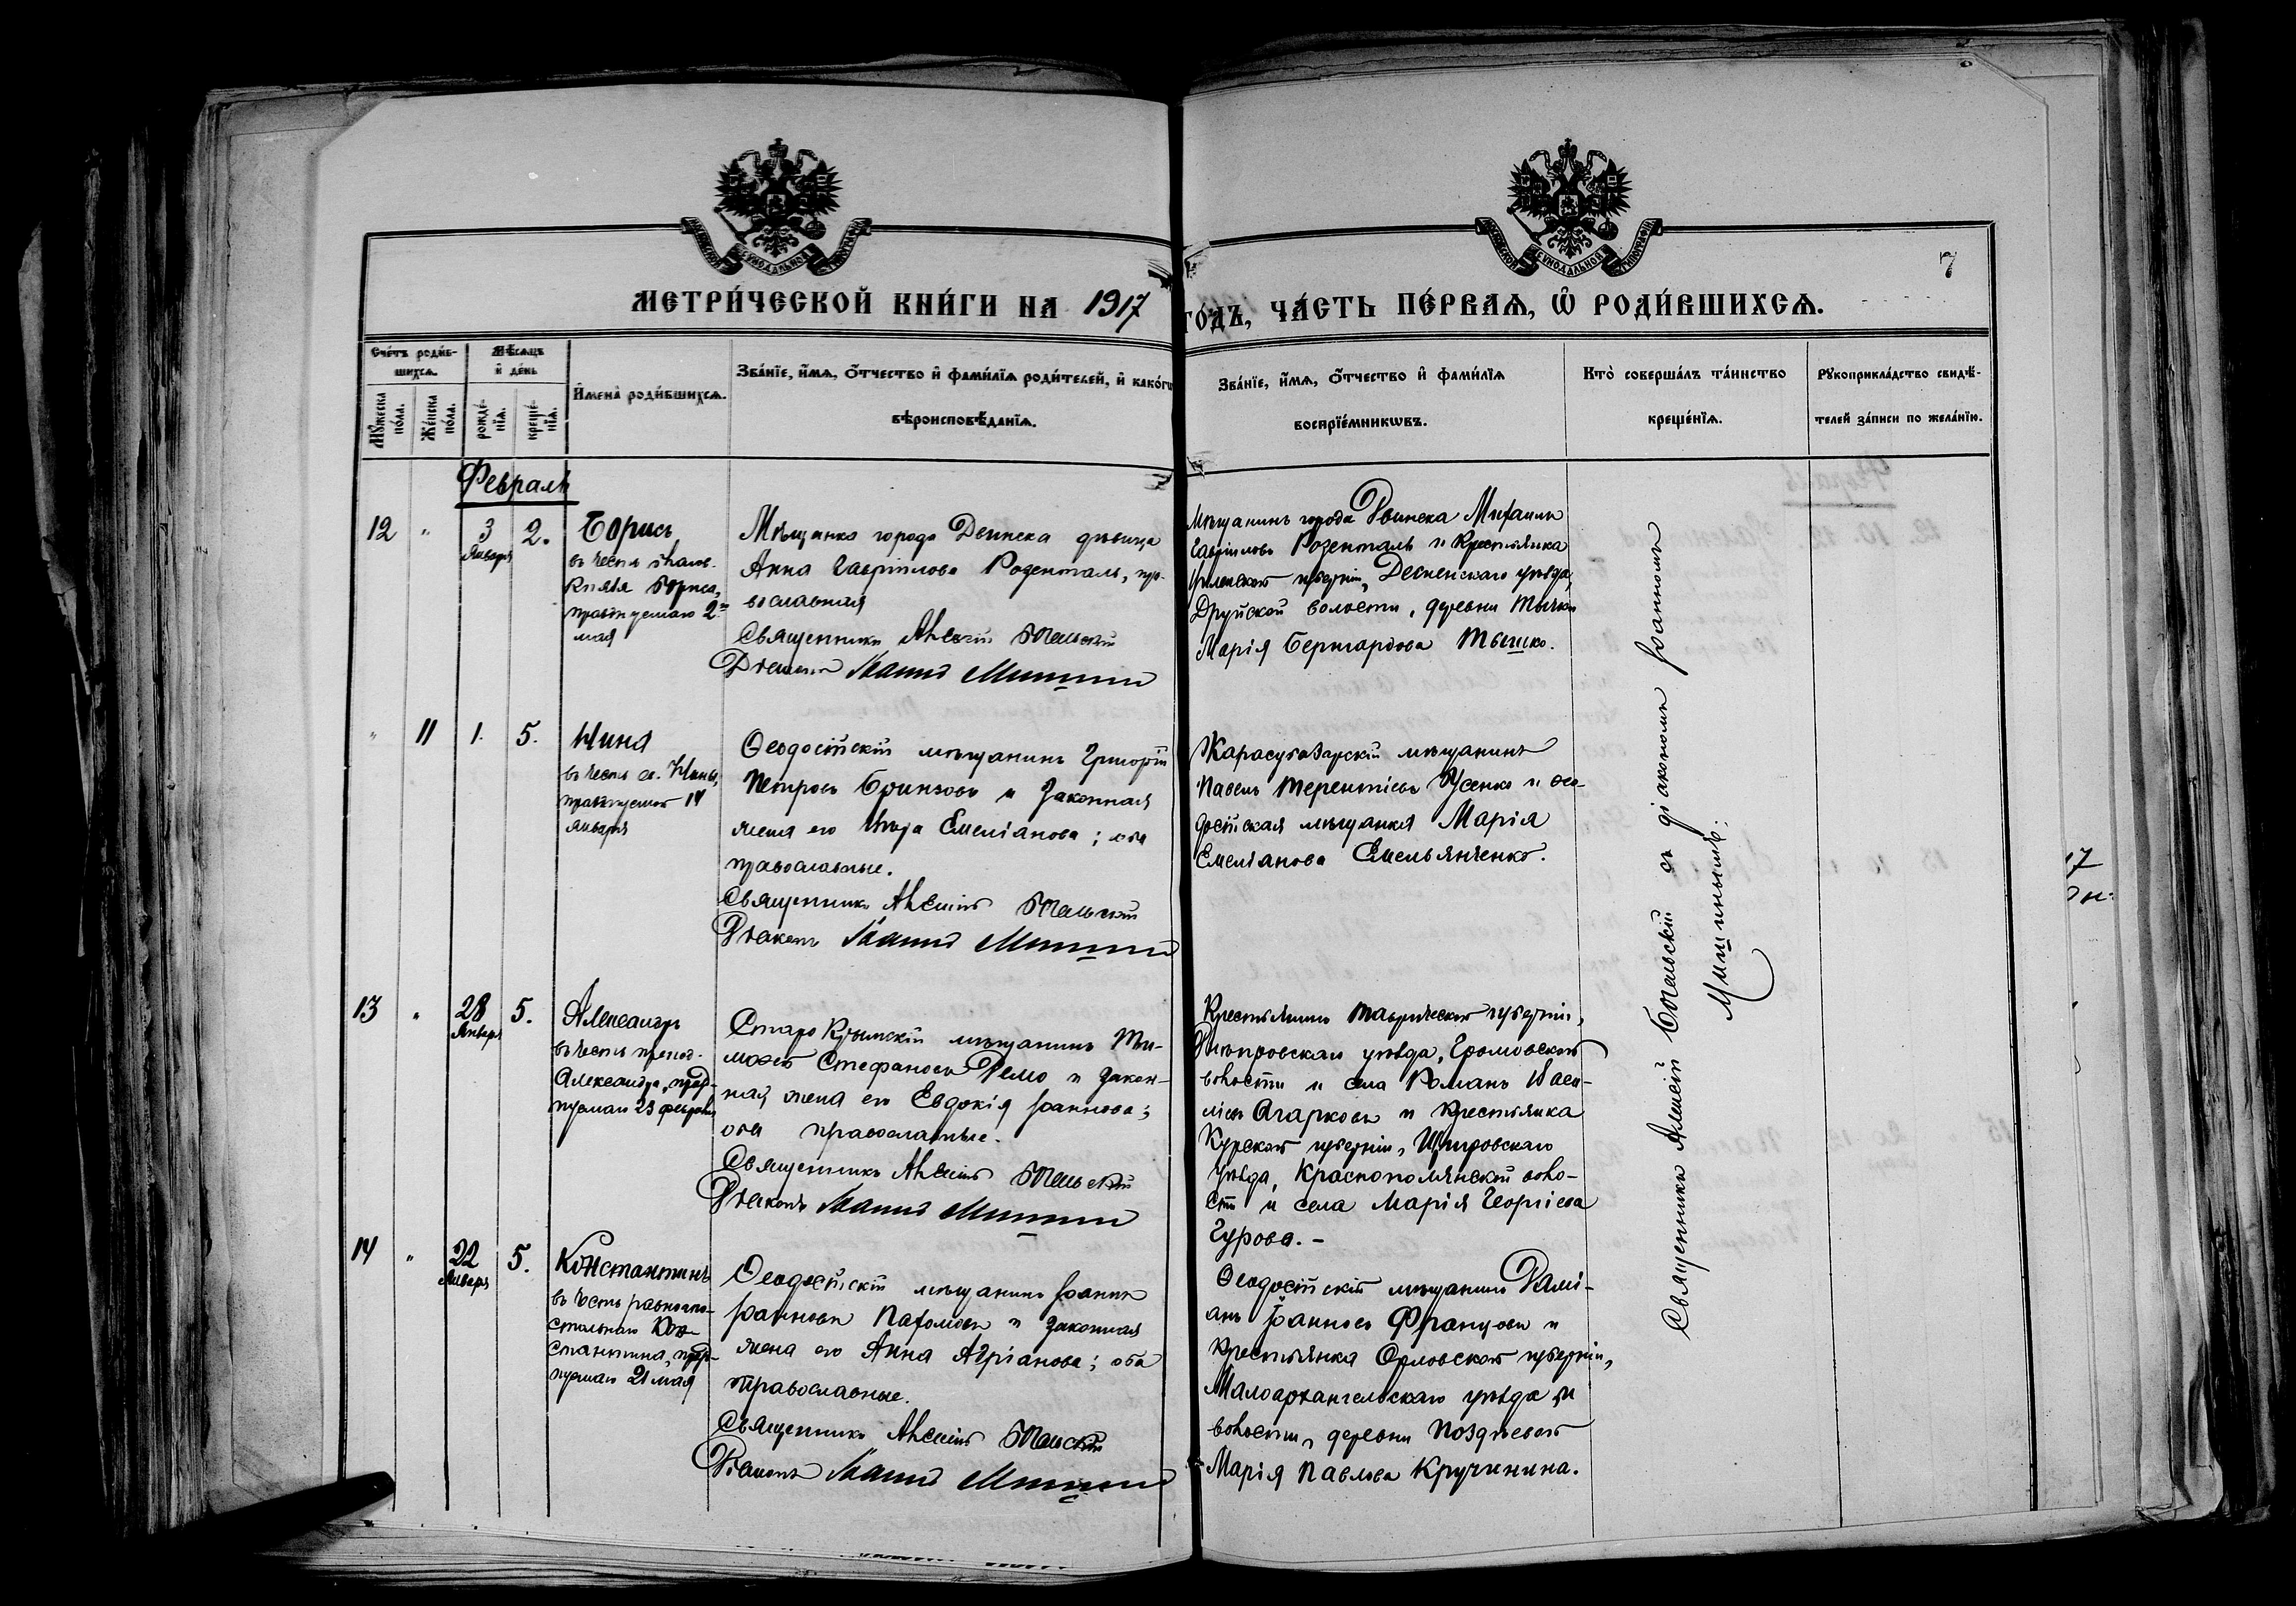 МЕТРИ́ЧЕСКОЙ КНИ́ГИ НА 1917
ГО́ДЪ, ЧА́СТЬ ПЕ́РВАЯ, Ѽ РОДИ́ВШИХСЯ.
7
Сче́тъ роди́в-
шихся.
Му́жеска по́ла.
Же́нска по́ла.
Мѣ́сяцъ
и де́нь
рожде́-
нїя.
креще́-
нїя.
Имена̀ роди́вшихся.
Зва́нїе, и́мя, о́тчество и фами́лїя роди́телей, и како́гѡ
вѣроисповѣ́данїя.
Зва́нїе, и́мя, о́тчество и фами́лїя
воспрїе́мникѡвъ.
Кто̀ соверша́лъ та́инство
креще́нїя.
Рꙋкоприкла́дство свидѣ́-
телей за́писи по жела́нїю.
Февраль
12 " 3 Января 2.
Борисъ
въ честь
Князя Бориса,
празднуемаго 2го
мая
Мѣщанка города Двинска дѣвица
Анна Гавріилова Розенталь, пра-
вославная
Священникъ Алексій
Діаконъ Іоаннъ Мишинъ
Мѣщанинъ города Двинска Михаилъ
Гавріиловъ Розенталь и крестьянка
Виленской губерніи, Дисненскаго уѣзда,
Друйской волости, деревни Тычки
Марія Бернардова Тышко.
" 11 1. 5.
Нина
въ честь св. Нины,
празднуемой 14
января
Ѳеодосійскій мѣщанинъ Григорій
Петровъ Бринзовъ и законная
жена его Вѣра Емеліанова; оба
православные.
Священникъ Алексій
Діаконъ Іоаннъ Мишинъ
Карасубазарскій мѣщанинъ
Павелъ Терентіевъ Усенко и ѳео-
досійская мѣщанка Марія
Емеліанова Емельянченко.
13 " 28 Января 5.
Александръ
въ честь препод.
Александра, празд-
нуемаго 23 февраля
Старо Крымскій мѣщанинъ Ти-
моѳей Стефановъ Рело и закон-
ная жена его Евдокія Іоаннова;
оба православные.
Священникъ Алексій
Діаконъ Іоаннъ Мишинъ
Крестьянинъ Таврической губерніи,
Днѣпровскаго уѣзда, Громовской
волости и села Романъ Васи-
ліевъ Агарковъ и крестьянка
Курской губерніи, Щигровскаго
уѣзда, Краснополянской воло-
сти и села Марія Георгіева
Гурова.-
14 " 22 Января 5.
Константинъ
въ честь равноапо-
стольнаго Кон-
стантина, празд-
нуемаго 21 мая
Ѳеодосійскій мѣщанинъ Іоаннъ
Іоанновъ Пахомовъ и законная
жена его Анна Адріанова; оба
православные.
Священникъ Алексій
Діаконъ Іоаннъ Мишинъ
Ѳеодосійскій мѣщанинъ Дамі-
анъ Іоанновъ Французовъ и
крестьянка Орловской губерніи,
Малоархангельскаго уѣзда и
волости, деревни Поздѣевой
Марія Павлова Кручинина.
Священникъ Алексій съ діакономъ Іоанномъ
Мишинымъ.